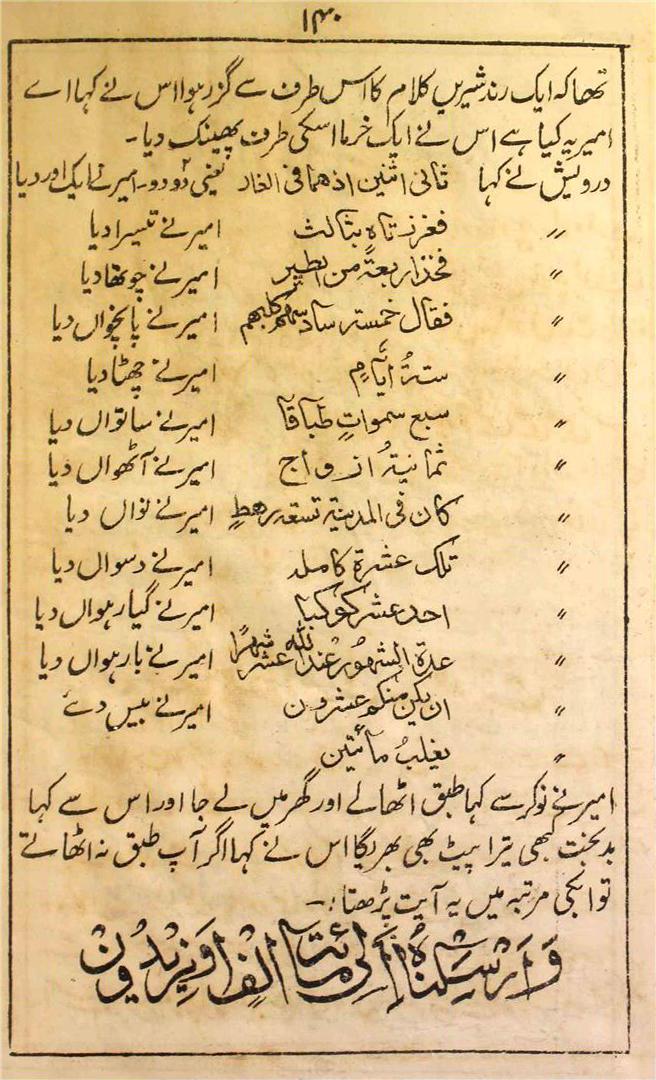 ۱۴۰
تھا کہ ایک رند شیریں کلام کا اس طرف سے گزر ہوا اس نے کہا اے
امیر یہ کیا ہے اس نے ایک خرما اسکی طرف پھینک دیا۔
درویش نے کہا ثانی اثنین اذ ھما فی الغار یعنی دو دو۔ امیر نے ایک اور دیا
〃 فعززناہ بثالث امیر نے تیسرا دیا
〃 فخذ اربعۃً من الطیر امیر نے چوتھا دیا
〃 فقال خمستہ سادسھم کلبھم امیر نے پانچواں دیا
〃 ستۃُ ایّامٍ امیر نے چھٹا دیا
〃 سبع سمواتٍ طباقاً امیر نے ساتواں دیا
〃 ثمانیۃُ ازواج امیر نے آٹھواں دیا
〃 کان فی المدینۃ تسعۃ رھطٍ امیر نے نواں دیا
〃 تلک عشرۃ کاملہ امیر نے دسواں دیا
〃 احد عشر کوکبا امیر نے گیارہواں دیا
〃 عدۃ الشھور عند اللہ عشر شھرًا امیر نے بارہواں دیا
〃 ان یکن منکم عشرون امیر نے بیس دئے
〃 یغلبُ مأتین
امیر نے نوکر سے کہا طبق اٹھا لے اور گھر میں لے جا اور اس سے کہا
بدبخت کبھی تیرا پیٹ بھی بھریگا اس نے کہا اگر آپ طبق نہ اٹھاتے
تو ابکی مرتبہ میں یہ آیت پڑھتا:۔
وَاَرْسَلْنَاہُ اِلٰی مِائَۃِ اَلْفٍ اَوْ یَزِیْدُوْنَ